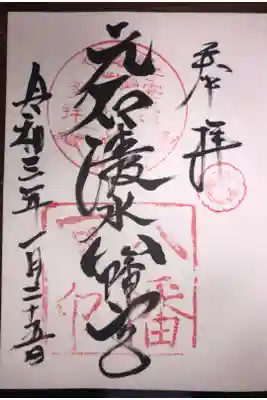 奉拝
元石清水八幡宮
令和三年一月二十五日